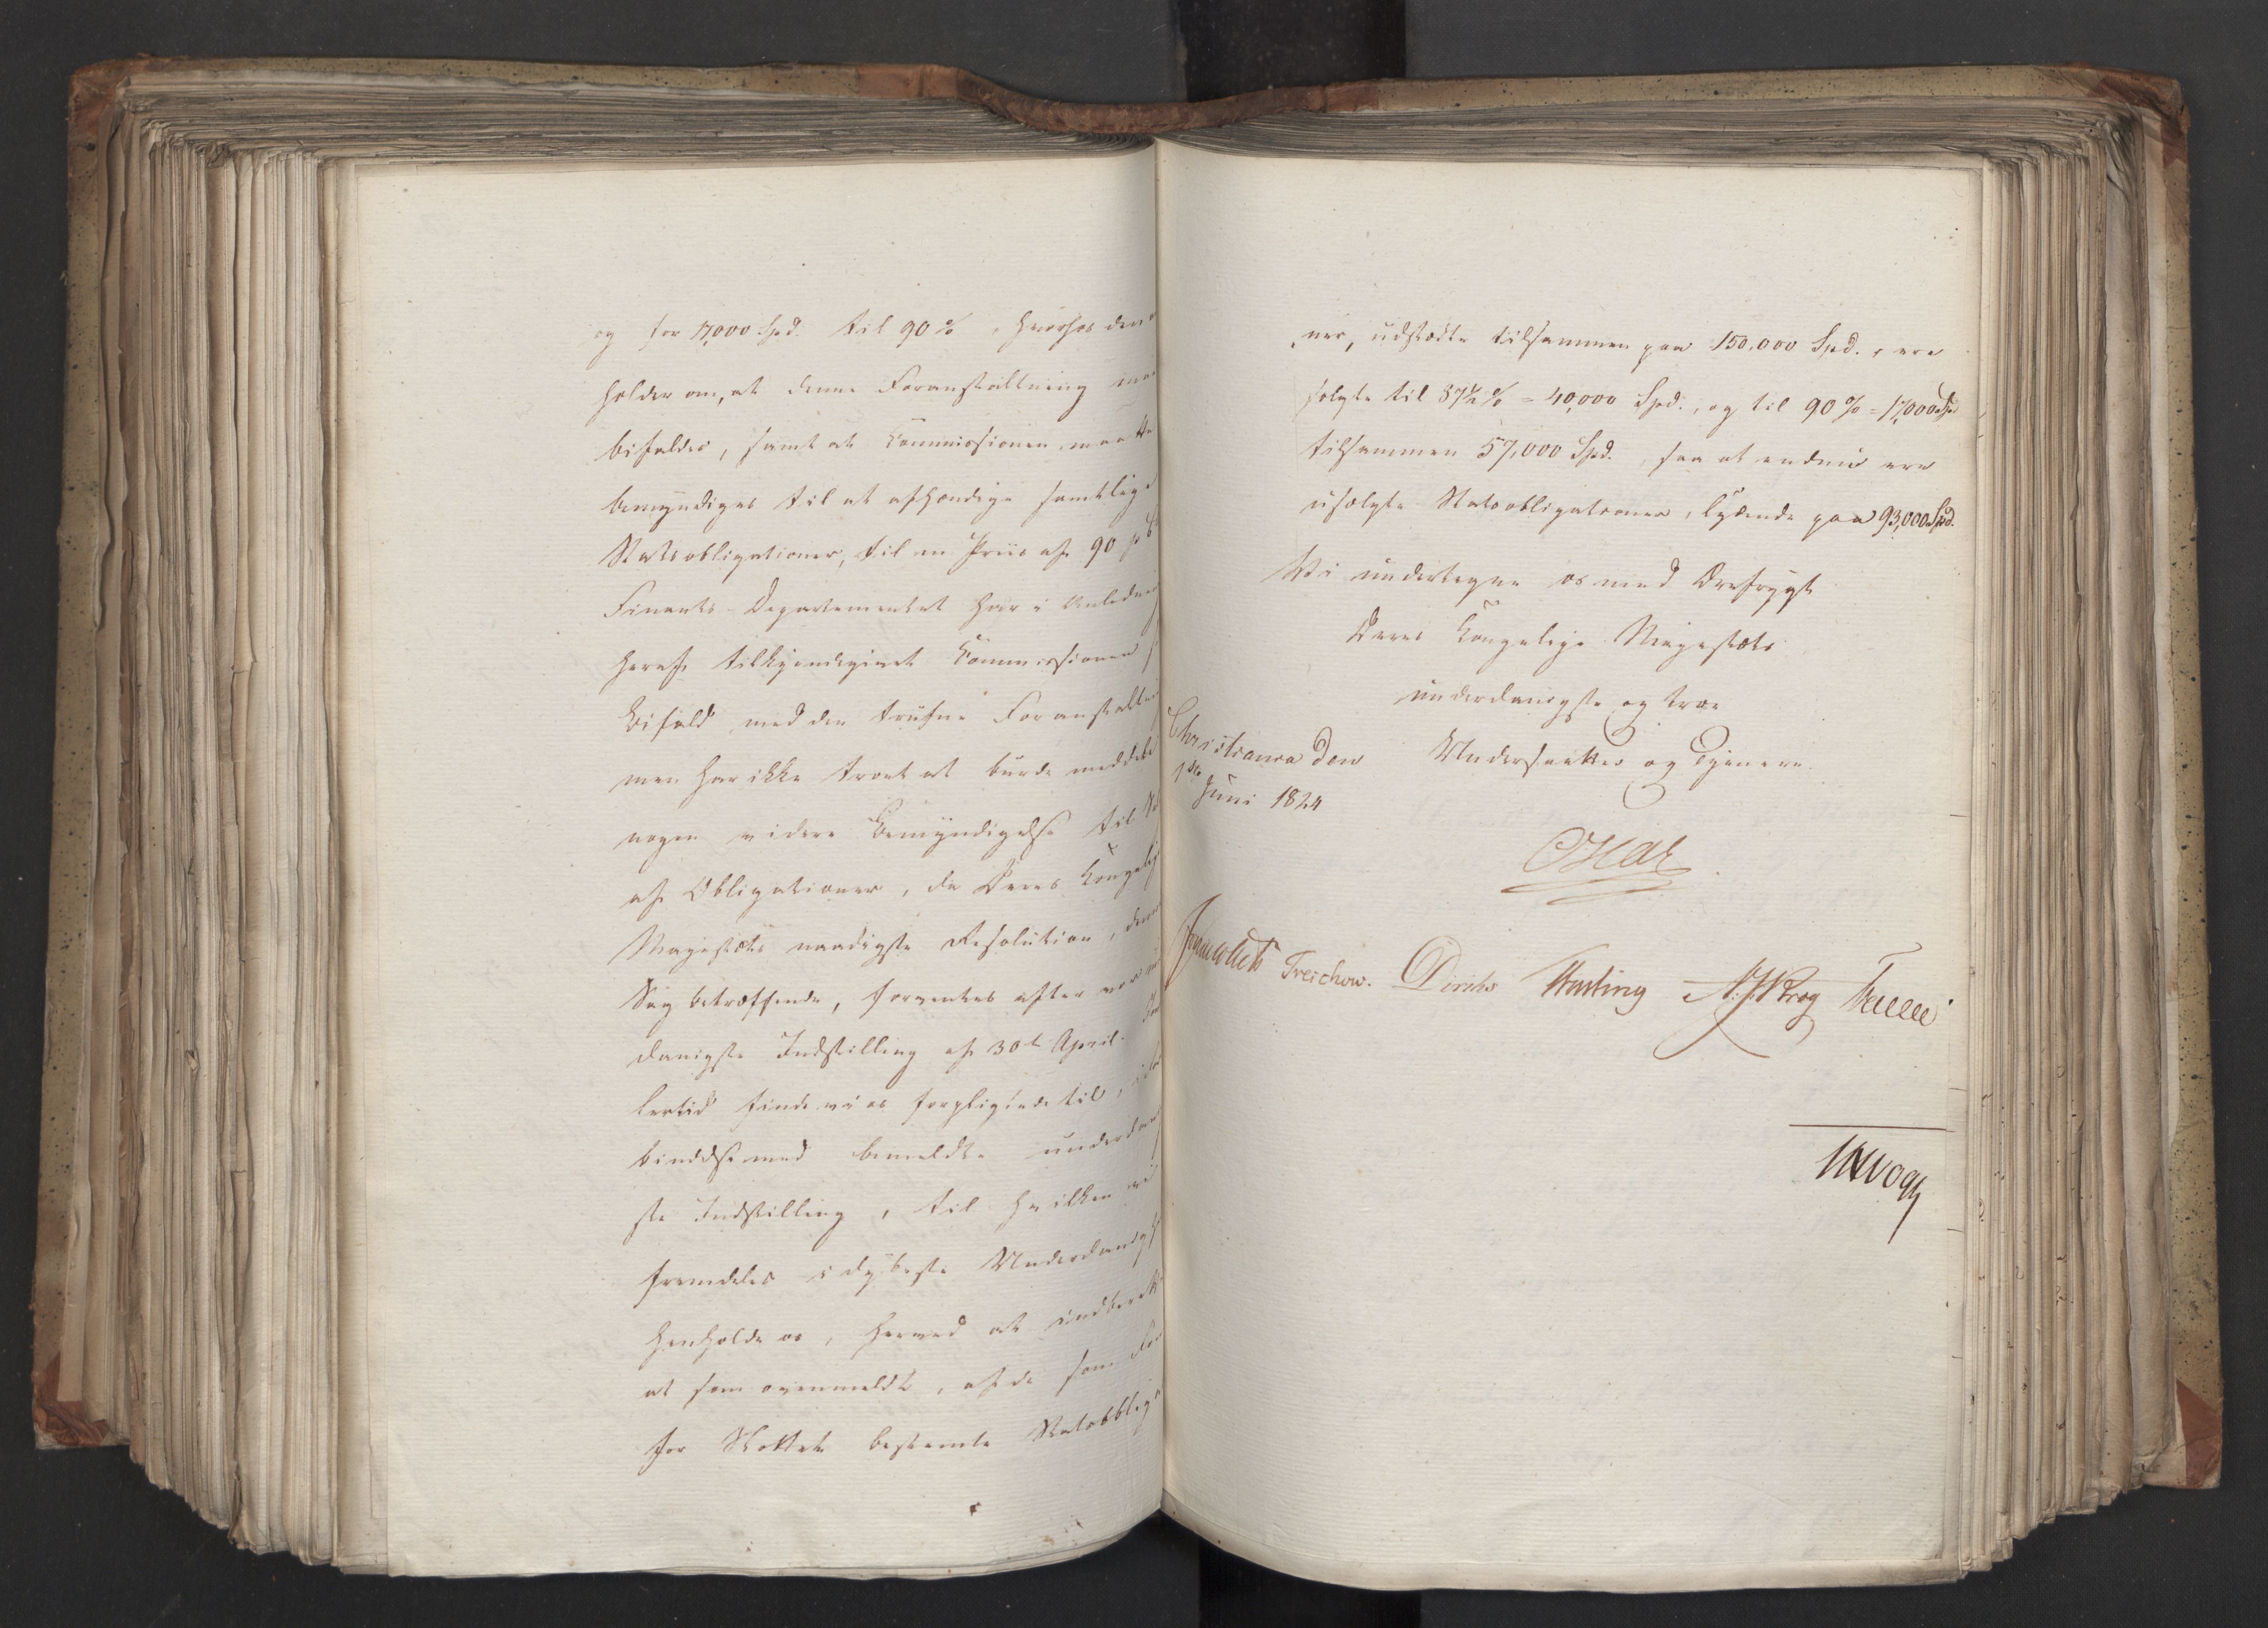 og for 17,000 Spd. til 90 %, hvorhos den
holder om, at denne Foranstaltning maa
bifaldes, samt at Commissionen maatte
bemyndiges til at afhændige samtlige
Statsobligationer, til en Priis af 90 p Ct
Finants-Departementet har i Anledning
heraf tilkjendegivet Commissionen
Bifald med den trufne Foranstaltni
men har ikke troet at burde meddele
nogen videre Bemyndigelse til
af Obligationer, da Deres Kongelige
Majestæts naadigste Resolution, denne
Sag betræffende, forventes efter vor un
danigste Indstilling af 30te April. Imid
lertid finde vi os forpligtede til, i
bindelse med bemeldte underdanig
ste Indstilling, til hvilken vi
fremdeles i dybeste Underdanigh
henholde os, herved at indberette
at som ovenmeldt, af de som Fond
for Slottet bestemte Statsobligatio
ner, udstædte tilsammen paa 150,000 Spd., ere
solgte til 87½ % = 40,000 Spd., og til 90 % = 17,000 Spd
tilsammen 57,000 Spd., saa at endnu ere
usolgte Statsobligationer, lydende paa 93,000 Spd.
Vi undertegne os med Ærefrygt
Deres Kongelige Majestæts
underdanigste og troe
Christiania den Undersaatter og Tjenere.
1ste Juni 1824
Oscar
Sommerhielm Treschow. Diriks Krog Fasting
JHVogt